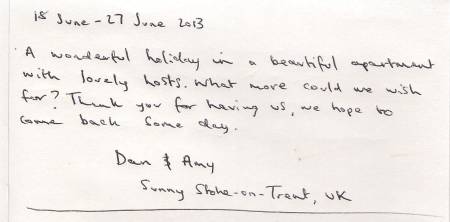 18 June - 27 June 2013
A wonderful holiday in a beautiful apartment
with lovely hosts. What more could we wish
for? Thank you for having us, we hope to
come back some day.
Dan & Amy
Sunny Stoke-on-Trent, UK